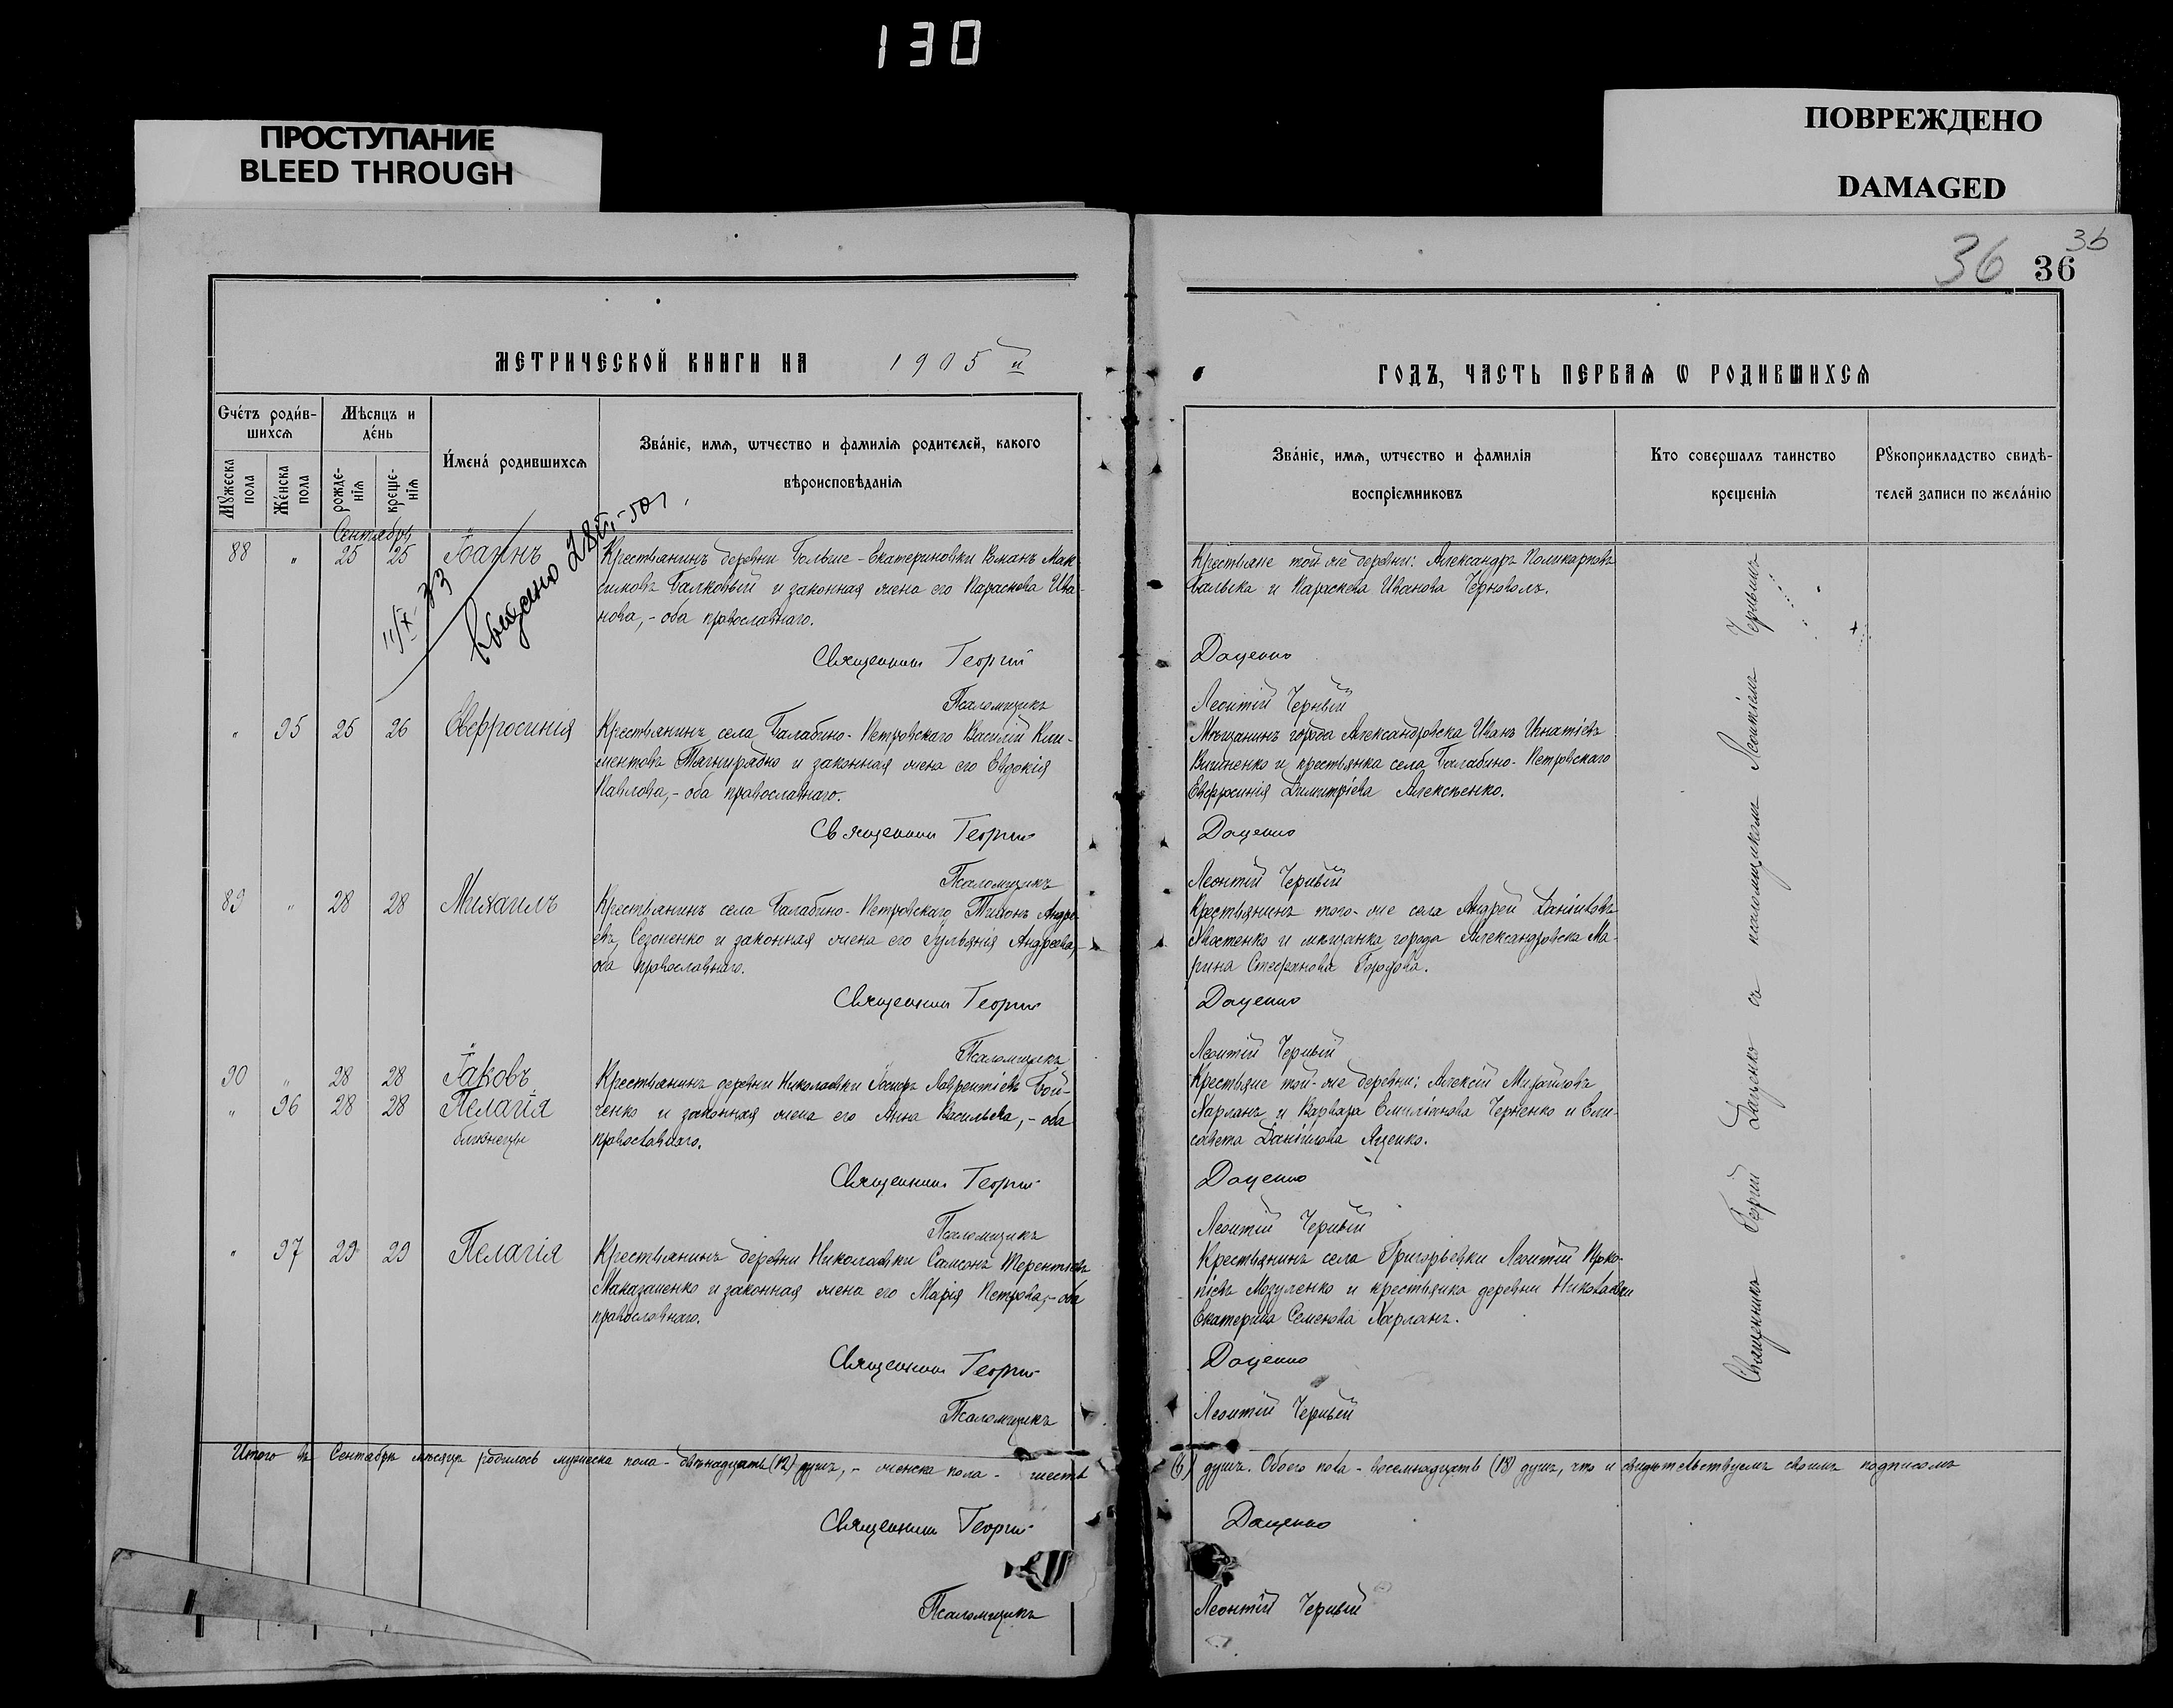 130
ПРОСТУПАНИЕ
BLEED THROUGH
ПОВРЕЖДЕНО
DAMAGED
36
36
36
МЕТРИЧЕСКОЙ КНИГИ НА 1905 й
ГОДЪ, ЧАСТЬ ПЕРВАѦ Ѡ РОДИВШИХСѦ
Счétъ роди́в-
шихсѧ
Мѣсяцъ и
дéнь
Мꙋжеска пола
Жéнска пола
рожде-
нїѧ
креще-
нїѧ
И́мена́ родившихсѧ
Звáнїе, имѧ, ѿчество и фамилїѧ родителей, какого
вѣроисповѣданїѧ
Звáнїе, имѧ, ѿчество и фамилїѧ
воспрїемниковъ
Кто совершалъ таинство
крещенїѧ
Рꙋкоприкладство свидѣ-
телей записи по желáнїю
Сентябрь
88 " 25 25 Іоаннъ
11/X-33
Крестьянинъ деревни Больше-Екатериновки Романъ Мак-
симовъ Балковый и законная жена его Параскева Ива-
нова,- оба православнаго.
Священник Георгий
Псаломщикъ
Крестьяне той же деревни: Александръ Поликарповъ
и Параскева Иванова Черноволъ.
Доценко
Леонтій Черный
" 95 25 26 Евфросинія
Крестьянинъ села Балабино-Петровскаго Василій Кли-
ментовъ Тягнирядно и законная жена его Евдокія
Павлова,- оба православнаго.
Священник Георгий
Псаломщикъ
Мѣщанинъ города Александровска Иванъ Игнатіевъ
и крестьянка села Балабино-Петровскаго
Евфросинія Димитріева Алексѣенко.
Доценко
Леонтій Черный
89 " 28 28 Михаилъ
Крестьянинъ села Балабино-Петровскаго Тимонъ Андре-
евъ Сезоненко и законная жена его Іуліанія Андреева,
оба православнаго.
Священник Георгий
Псаломщикъ
Крестьянинъ того-же села Андрей Даніиловъ
Хвостенко и мѣщанка города Александровска Ма-
рина Стефанова
Доценко
Леонтій Черный
90 " 28 28 Іаковъ
" 96 28 28 Пелагія
близнецы
Крестьянинъ деревни Николаевки Іосифъ Лаврентіевъ Бой-
ченко и законная жена его Анна Васильева,- оба
православнаго.
Священник Георгий
Псаломщикъ
Крестьяне той-же деревни: Алексій Михайловъ
Харланъ и Варвара Емиліанова Черненко и Ели-
савета Даніилова Яценко.
Доценко
Леонтій Черный
" 97 29 29 Пелагія
Крестьянинъ деревни Николаевки Самсонъ Терентіевъ
и законная жена его Марія Петрова,- оба
православнаго.
Священник Георгий
Псаломщикъ
Крестьянинъ села Григорьевки Леонтій Проко-
піевъ Мозуленко и крестьянка деревни Николаевки
Екатерина Семенова Харланъ.
Доценко
Леонтій Черный
Священникъ Георгій Даценко съ псаломщикомъ Леонтіемъ Чернымъ
Итого въ Сентябрѣ мѣсяцѣ родилось мужеска пола - двѣнадцать (12) душъ, - женска пола - шесть
(6) душъ. Обоего пола - восемнадцать (18) душъ, что и свидѣтельствуемъ своимъ подписомъ
Священник Георгий
Доценко
Псаломщикъ
Леонтій Черный